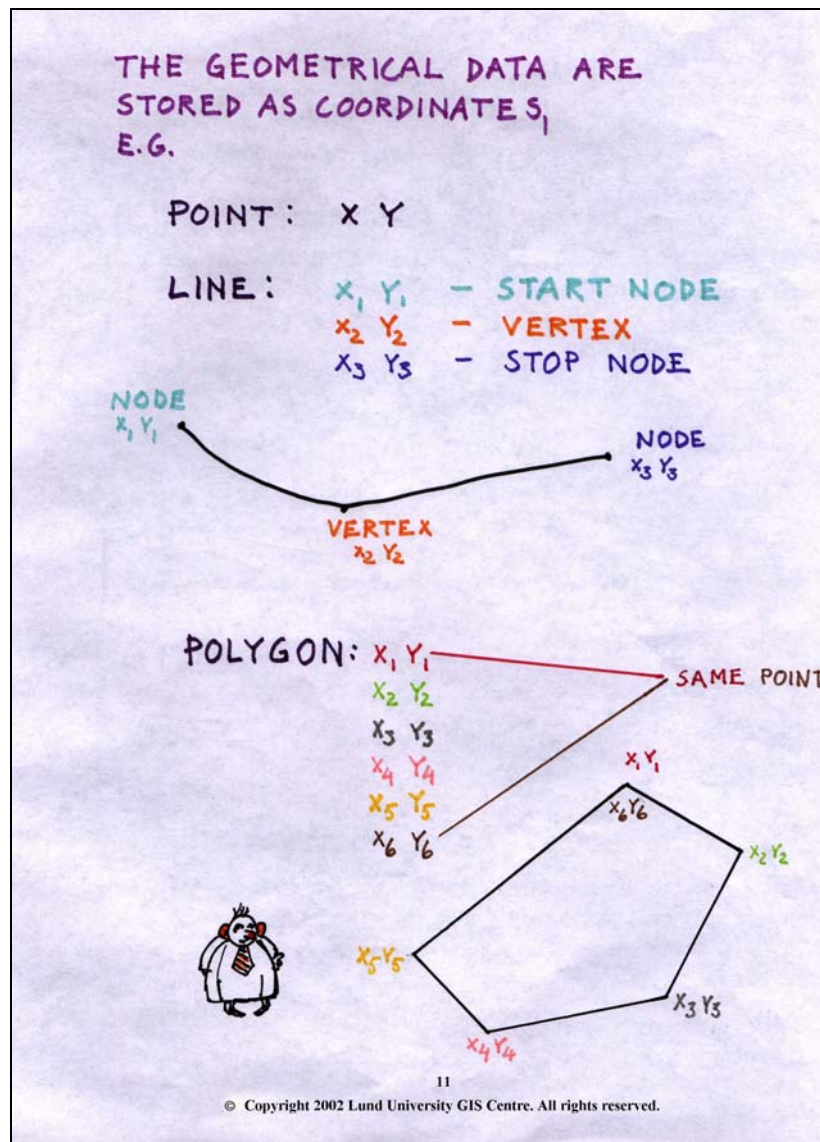 THE GEOMETRICAL DATA ARE
STORED AS COORDINATES,
E.G.
POINT: X Y
LINE: X₁ Y₁ - START NODE
X₂ Y₂ - VERTEX
X₃ Y₃ - STOP NODE
NODE
X₁ Y₁
NODE
X₃ Y₃
VERTEX
X₂ Y₂
POLYGON: X₁ Y₁
SAME POINT
X₂ Y₂
X₃ Y₃
X₄ Y₄
X₅ Y₅
X₆ Y₆
X₁ Y₁
X₆ Y₆
X₂ Y₂
X₅ Y₅
X₃ Y₃
X₄ Y₄
11
© Copyright 2002 Lund University GIS Centre. All rights reserved.